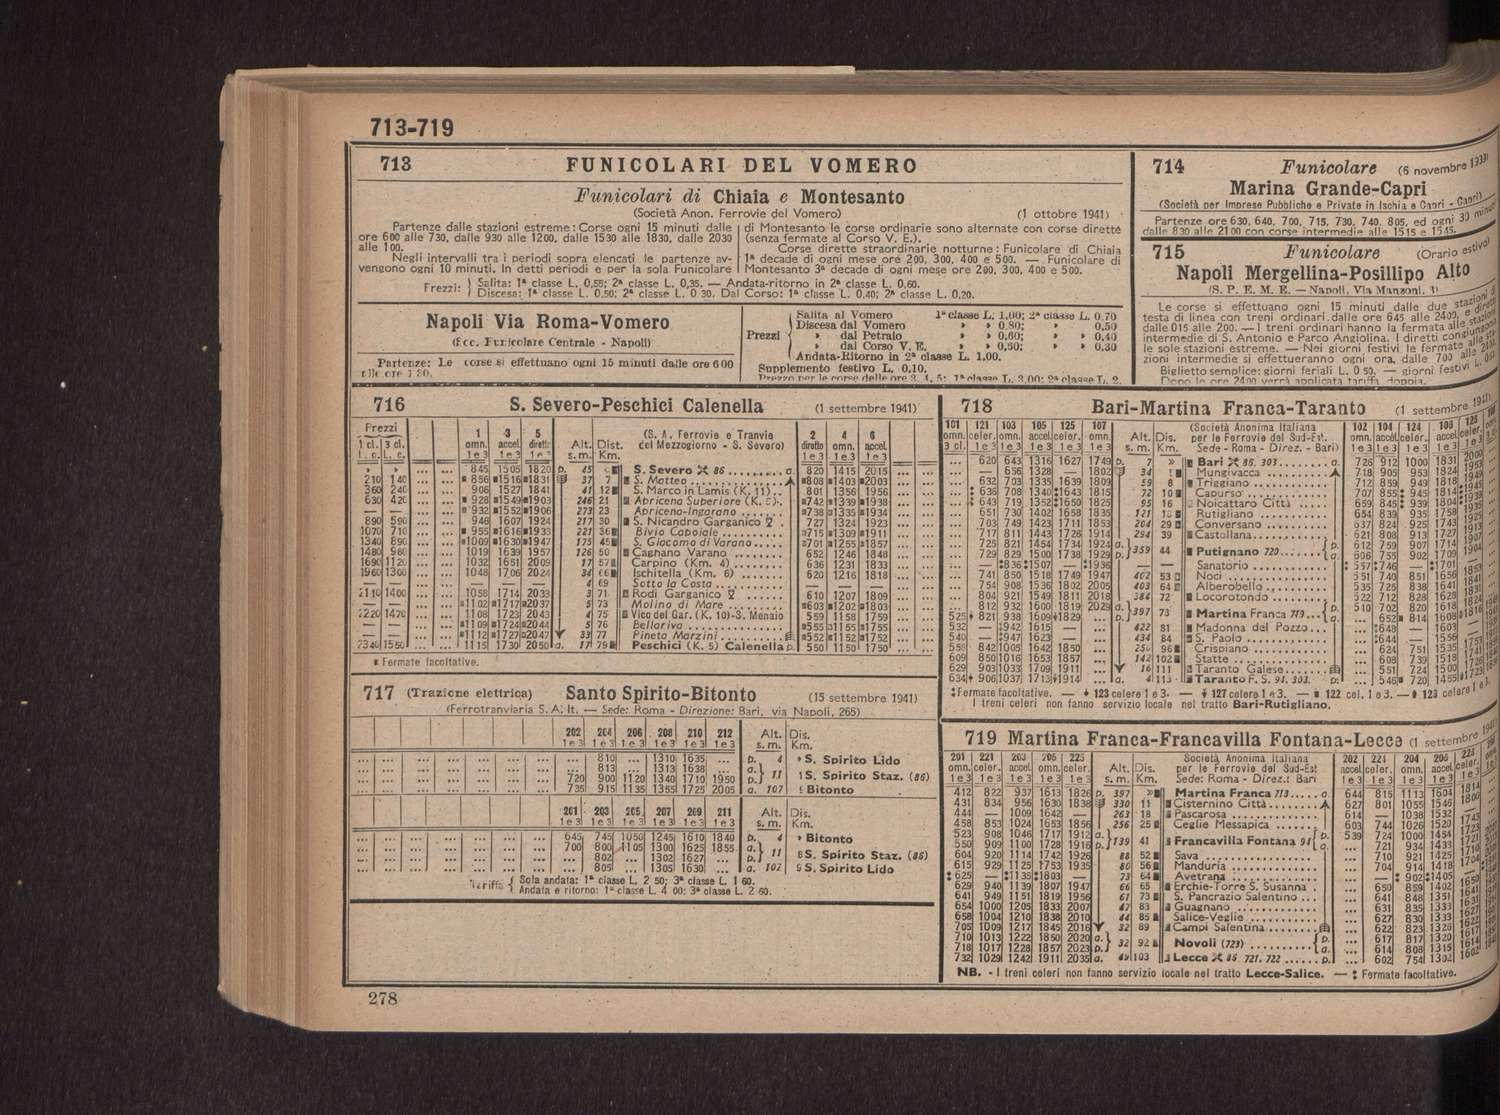 713-719
713 FUNICOLARI DEL VOMERO
Funicolari di Chiaia e Montesanto
(Società Anon. Ferrovie del Vomero) (1 ottobre 1941)
Partenze dalle stazioni estreme: Corse ogni 15 minuti dalle
ore 600 alle 730, dalle 930 alle 1200, dalle 1530 alle 1830, dalle 2030
alle 100.
Negli intervalli tra i periodi sopra elencati le partenze av-
vengono ogni 10 minuti. In detti periodi e per la sola Funicolare
di Montesanto le corse ordinarie sono alternate con corse dirette
(senza fermate al Corso V. E.).
Corse dirette straordinarie notturne: Funicolare di Chiaia
1ª decade di ogni mese ore 200, 300, 400 e 500. — Funicolare di
Montesanto 3ª decade di ogni mese ore 200, 300, 400 e 500.
Frezzi: Salita: 1ª classe L. 0,55; 2ª classe L. 0,35. — Andata-ritorno in 2ª classe L. 0.60.
Discesa: 1ª classe L. 0,50; 2ª classe L. 0 30. Dal Corso: 1ª classe L. 0,40; 2ª classe L. 0,20.
Napoli Via Roma-Vomero
(Ecc. Funicolare Centrale - Napoli)
Partenze: Le corse si effettuano ogni 15 minuti dalle ore 6 00
Prezzi
Salita al Vomero 1ª classe L. 1,00; 2ª classe L. 0,70
Discesa dal Vomero » » 0,80; » 0,50
» dal Petraio » » 0,60; » 0,40
» dal Corso V. E. » » 0,50; » 0,30
Andata-Ritorno in 2ª classe L. 1,00.
Supplemento festivo L. 0,10.
Prezzo per le corse delle ore 3, 4, 5: 1ª classe L. 3,00; 2ª classe L. 2.
714 Funicolare (6 novembre 1939)
Marina Grande-Capri
(Società per Imprese Pubbliche e Private in Ischia e Capri - Capri)
Partenze ore 630, 640, 700, 715, 730, 740, 805, ed ogni 30 minuti
dalle 830 alle 2100 con corse intermedie alle 1515 e 1545.
715 Funicolare (Orario estivo)
Napoli Mergellina-Posillipo Alto
(S. P. E. M. E. — Napoli, Via Manzoni, 3)
Le corse si effettuano ogni 15 minuti dalle due stazioni di
testa di linea con treni ordinari dalle ore 645 alle 2400, e diretti
dalle 015 alle 200. — I treni ordinari hanno la fermata alle stazioni
intermedie di S. Antonio e Parco Angiolina. I diretti congiungono
le sole stazioni estreme. — Nei giorni festivi le fermate alle sta-
zioni intermedie si effettueranno ogni ora, dalle 700 alle
Biglietto semplice: giorni feriali L. 0 50. — giorni festivi L.
Dopo le ore 2400 verrà applicata tariffa doppia.
716 S. Severo-Peschici Calenella (1 settembre 1941)
(S. A. Ferrovie e Tranvie
del Mezzogiorno - S. Severo)
Prezzi
1 cl. 3 cl. 1 omn. 3 accel 5 diretto Alt. s. m. Dist. Km. 2 diretto 4 omn. 6 accel
845 1505 1820 p. 45 S. Severo 86 a. 820 1415 2015
210 140 856 1516 1831 37 7 S. Matteo 808 1403 2003
360 240 906 1527 1841 41 12 S. Marco in Lamis (K. 11) 801 1356 1956
630 420 928 1549 1903 246 21 Apricena Superiore (K. 5) 742 1339 1938
— — 932 1552 1906 273 23 Apricena-Ingarano 738 1335 1934
890 590 946 1607 1924 217 30 S. Nicandro Garganico 727 1324 1923
1070 710 955 1616 1933 221 36 Bivio Capoiale 715 1309 1911
1340 890 1009 1630 1947 175 45 S. Giacomo di Varano 701 1255 1857
1480 980 1019 1639 1957 126 50 Cagnano Varano 652 1246 1848
1690 1120 1032 1651 2009 17 57 Carpino (Km. 4) 636 1231 1833
1960 1300 1048 1706 2024 34 66 Ischitella (Km. 6) 620 1216 1818
— — — — — 4 69 Sotto la Costa — — —
2110 1400 1058 1714 2033 3 71 Rodi Garganico 610 1207 1809
— — 1102 1717 2037 5 73 Molino di Mare 603 1202 1803
2220 1470 1108 1723 2043 4 75 Vico del Gar. (K. 10)-S. Menaio 559 1158 1759
— — 1109 1724 2044 5 76 Bellariva 555 1155 1755
— — 1112 1727 2047 33 77 Pineta Marzini 552 1152 1752
2340 1550 1115 1730 2050 a. 17 79 Peschici (K. 5) Calenella p. 550 1150 1750
Fermate facoltative.
717 (Trazione elettrica) Santo Spirito-Bitonto (15 settembre 1941)
(Ferrotranviaria S. A. It. — Sede: Roma - Direzione: Bari, via Napoli, 265)
202 204 206 208 210 212 Alt. Dis.
1 e 3 1 e 3 1 e 3 1 e 3 1 e 3 1 e 3 s. m. Km.
... 810 ... 1310 1635 ... p. 4 » S. Spirito Lido
... 813 ... 1313 1638 ... a.
720 900 1120 1340 1710 1950 p. 11 1 S. Spirito Staz. (86)
735 915 1135 1355 1725 2005 a. 107 Bitonto
201 203 205 207 209 211 Alt. Dis.
1 e 3 1 e 3 1 e 3 1 e 3 1 e 3 1 e 3 s. m. Km.
645 745 1050 1245 1610 1840 p. 4 » Bitonto
700 800 1105 1300 1625 1855 a.
... 802 ... 1302 1627 ... p. 11 8 S. Spirito Staz. (86)
... 805 ... 1305 1630 ... a. 102 9 S. Spirito Lido
Tariffa Sola andata: 1ª classe L. 2 50; 3ª classe L. 1 60.
Andata e ritorno: 1ª classe L. 4 00; 3ª classe L. 2 60.
718 Bari-Martina Franca-Taranto (1 settembre 1941)
(Società Anonima Italiana
per le Ferrovie del Sud-Est.
Sede - Roma - Direz. - Bari)
101 121 103 105 125 107 Alt. Dis. 102 104 124 106
omn. celer. omn. accel celer. omn. s. m. Km. omn. accel. celer. omn.
... 620 643 1316 1627 1749 p. 7 » Bari 86, 303 a. 726 912 1000 1831
... — 656 1328 — 1802 34 Mungivacca 718 905 953 1824
... 632 703 1335 1639 1809 59 8 Triggiano 712 859 949 1818
... 636 708 1340 1643 1815 72 10 Capurso 707 855 945 1814
... 643 719 1352 1650 1825 95 16 Noicattaro Città 659 845 939 1804
... 651 730 1402 1658 1835 Rutigliano 654 839 935 1758
... 703 749 1423 1711 1853 204 29 Conversano 637 824 925 1743
... 717 811 1443 1726 1914 294 39 Castellana 621 808 913 1727
... 725 821 1454 1734 1924 a. 359 44 Putignano 720 p. 612 759 907 1714
... 729 829 1500 1738 1929 p. a. 606 755 902 1709
... — 836 1507 — 1936 Sanatorio 557 746 — 1701
... 741 850 1518 1749 1947 402 53 Noci 551 740 851 1656
... 754 908 1536 1802 2005 403 64 Alberobello 535 725 838 1641
... 804 921 1549 1811 2018 384 72 Locorotondo 522 712 828 1628
... 812 932 1600 1819 2029 a. 397 73 Martina Franca 719 p. 510 702 820 1618
525 821 938 1609 1829 ... p. a. ... 652 814 1608
532 — 942 1615 — ... 422 81 Madonna del Pozzo ... 648 — 1603
540 — 947 1623 — ... 434 84 S. Paolo ... 644 — 1556
558 842 1005 1642 1850 ... 250 96 Crispiano ... 624 751 1535
609 850 1016 1653 1857 ... 142 102 Statte ... 608 739 1518
629 903 1033 1709 1911 ... 16 111 Taranto Galese ... 551 724 1500
634 906 1037 1713 1914 ... a. 4 113 Taranto F. S. 94, 303. p. ... 546 720 1455
Fermate facoltative. — 123 celere 1 e 3. — 127 celere 1 e 3. — 122 cel. 1 e 3. — 128 celere 1 e 3.
I treni celeri non fanno servizio locale nel tratto Bari-Rutigliano.
719 Martina Franca-Francavilla Fontana-Lecce (1 settembre 1941)
Società Anonima Italiana
per le Ferrovie del Sud-Est
Sede: Roma - Direz.: Bari
201 221 203 205 223 Alt. Dis. 202 221 204 206
omn. celer. accel omn. celer. s. m. Km. accel celer. omn. accel
412 822 937 1613 1826 p. 397 » Martina Franca 718 a. 644 815 1113 1604
431 834 956 1630 1838 330 11 Cisternino Città 627 801 1055 1546
444 — 1009 1642 — 263 18 Pascarosa 614 — 1038 1532
458 853 1024 1653 1856 256 25 Ceglie Messapica 603 744 1026 1520
523 908 1046 1717 1912 a. 139 41 Francavilla Fontana 94 p. 539 724 1000 1454
550 909 1100 1728 1916 p. a. ... 721 934 1433
604 920 1114 1742 1926 88 52 Sava ... 710 921 1425
615 929 1125 1753 1935 80 56 Manduria ... 704 914 1418
625 — 1135 1803 — 73 64 Avetrana ... — 902 1405
629 940 1139 1807 1947 66 65 Erchie-Torre S. Susanna ... 650 859 1402
641 949 1151 1819 1956 61 73 S. Pancrazio Salentino ... 641 848 1351
654 1000 1205 1833 2007 47 83 Guagnano ... 631 835 1333
658 1004 1210 1838 2010 44 85 Salice-Veglie ... 627 830 1333
705 1009 1217 1845 2016 32 89 Campi Salentina ... 622 823 1326
710 1013 1222 1850 2020 a. 32 92 Novoli (723) p. ... 617 817 1320
718 1017 1228 1857 2023 p. a. ... 614 808 1315
732 1029 1242 1911 2035 a. 49 103 Lecce 86, 721, 722 p. ... 602 754 1302
NB. - I treni celeri non fanno servizio locale nel tratto Lecce-Salice. — Fermate facoltative.
278